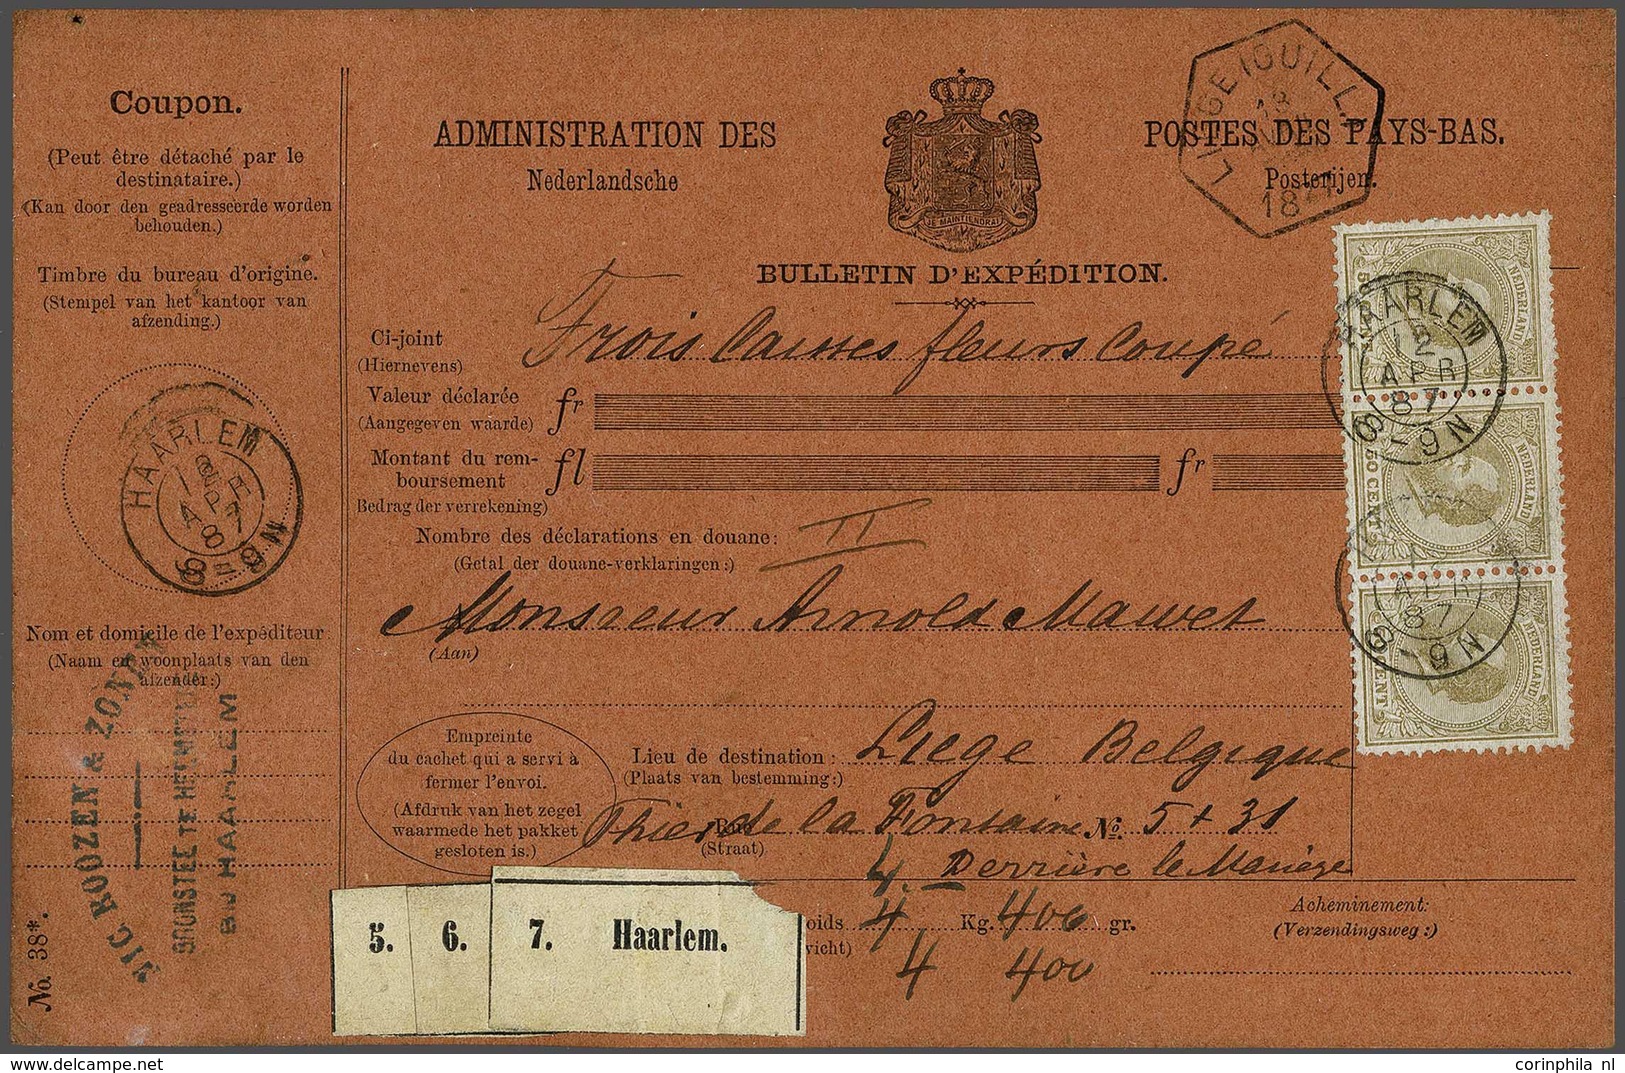 Coupon.
(Peut être détaché par le
destinataire.)
(Kan door den geadresseerde worden
behouden.)
Timbre du bureau d'origine.
(Stempel van het kantoor van
afzending.)
HAARLEM
8-9N
Nom et domicile de l'expéditeur:
(Naam en woonplaats van den
afzender:)
NIC. ROOZEN & ZONEN
BIJ HAARLEM
No. 38*.
ADMINISTRATION DES
POSTES DES PAYS-BAS.
Nederlandsche
Posterijen.
JE MAINTIENDRAI
BULLETIN D'EXPÉDITION.
Ci-joint
(Hiernevens)
Frois Causses fleurs Coupé
Valeur déclarée
(Aangegeven waarde)
fr
Montant du rem-
boursement
fl
fr
(Bedrag der verrekening)
Nombre des déclarations en douane:
(Getal der douane-verklaringen:)
II
Monsieur Arnold Mawet
(Aan)
Empreinte
du cachet qui a servi à
fermer l'envoi.
(Afdruk van het zegel
waarmede het pakket
gesloten is.)
Lieu de destination:
(Plaats van bestemming:)
Liege Belgique
Thier de la Fontaine No. 5 + 31
(Straat)
Derrière le Manège
5. 6. 7. Haarlem.
4.
4 Kg. 400 gr.
4 400
Acheminement:
(Verzendingsweg:)
HAARLEM
12
APR
87
8-9N
NEDERLAND
50 CENT
NEDERLAND
NEDERLAND
APR
87
8-9N
corinphila nl